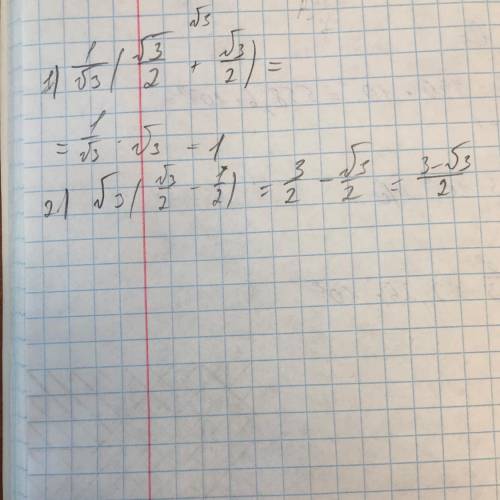 √3
1) 1/√3 ( √3/2 + √3/2 ) =
= 1/√3 · √3 = 1
2) √3 ( √3/2 - 1/2 ) = 3/2 - √3/2 = 3-√3/2